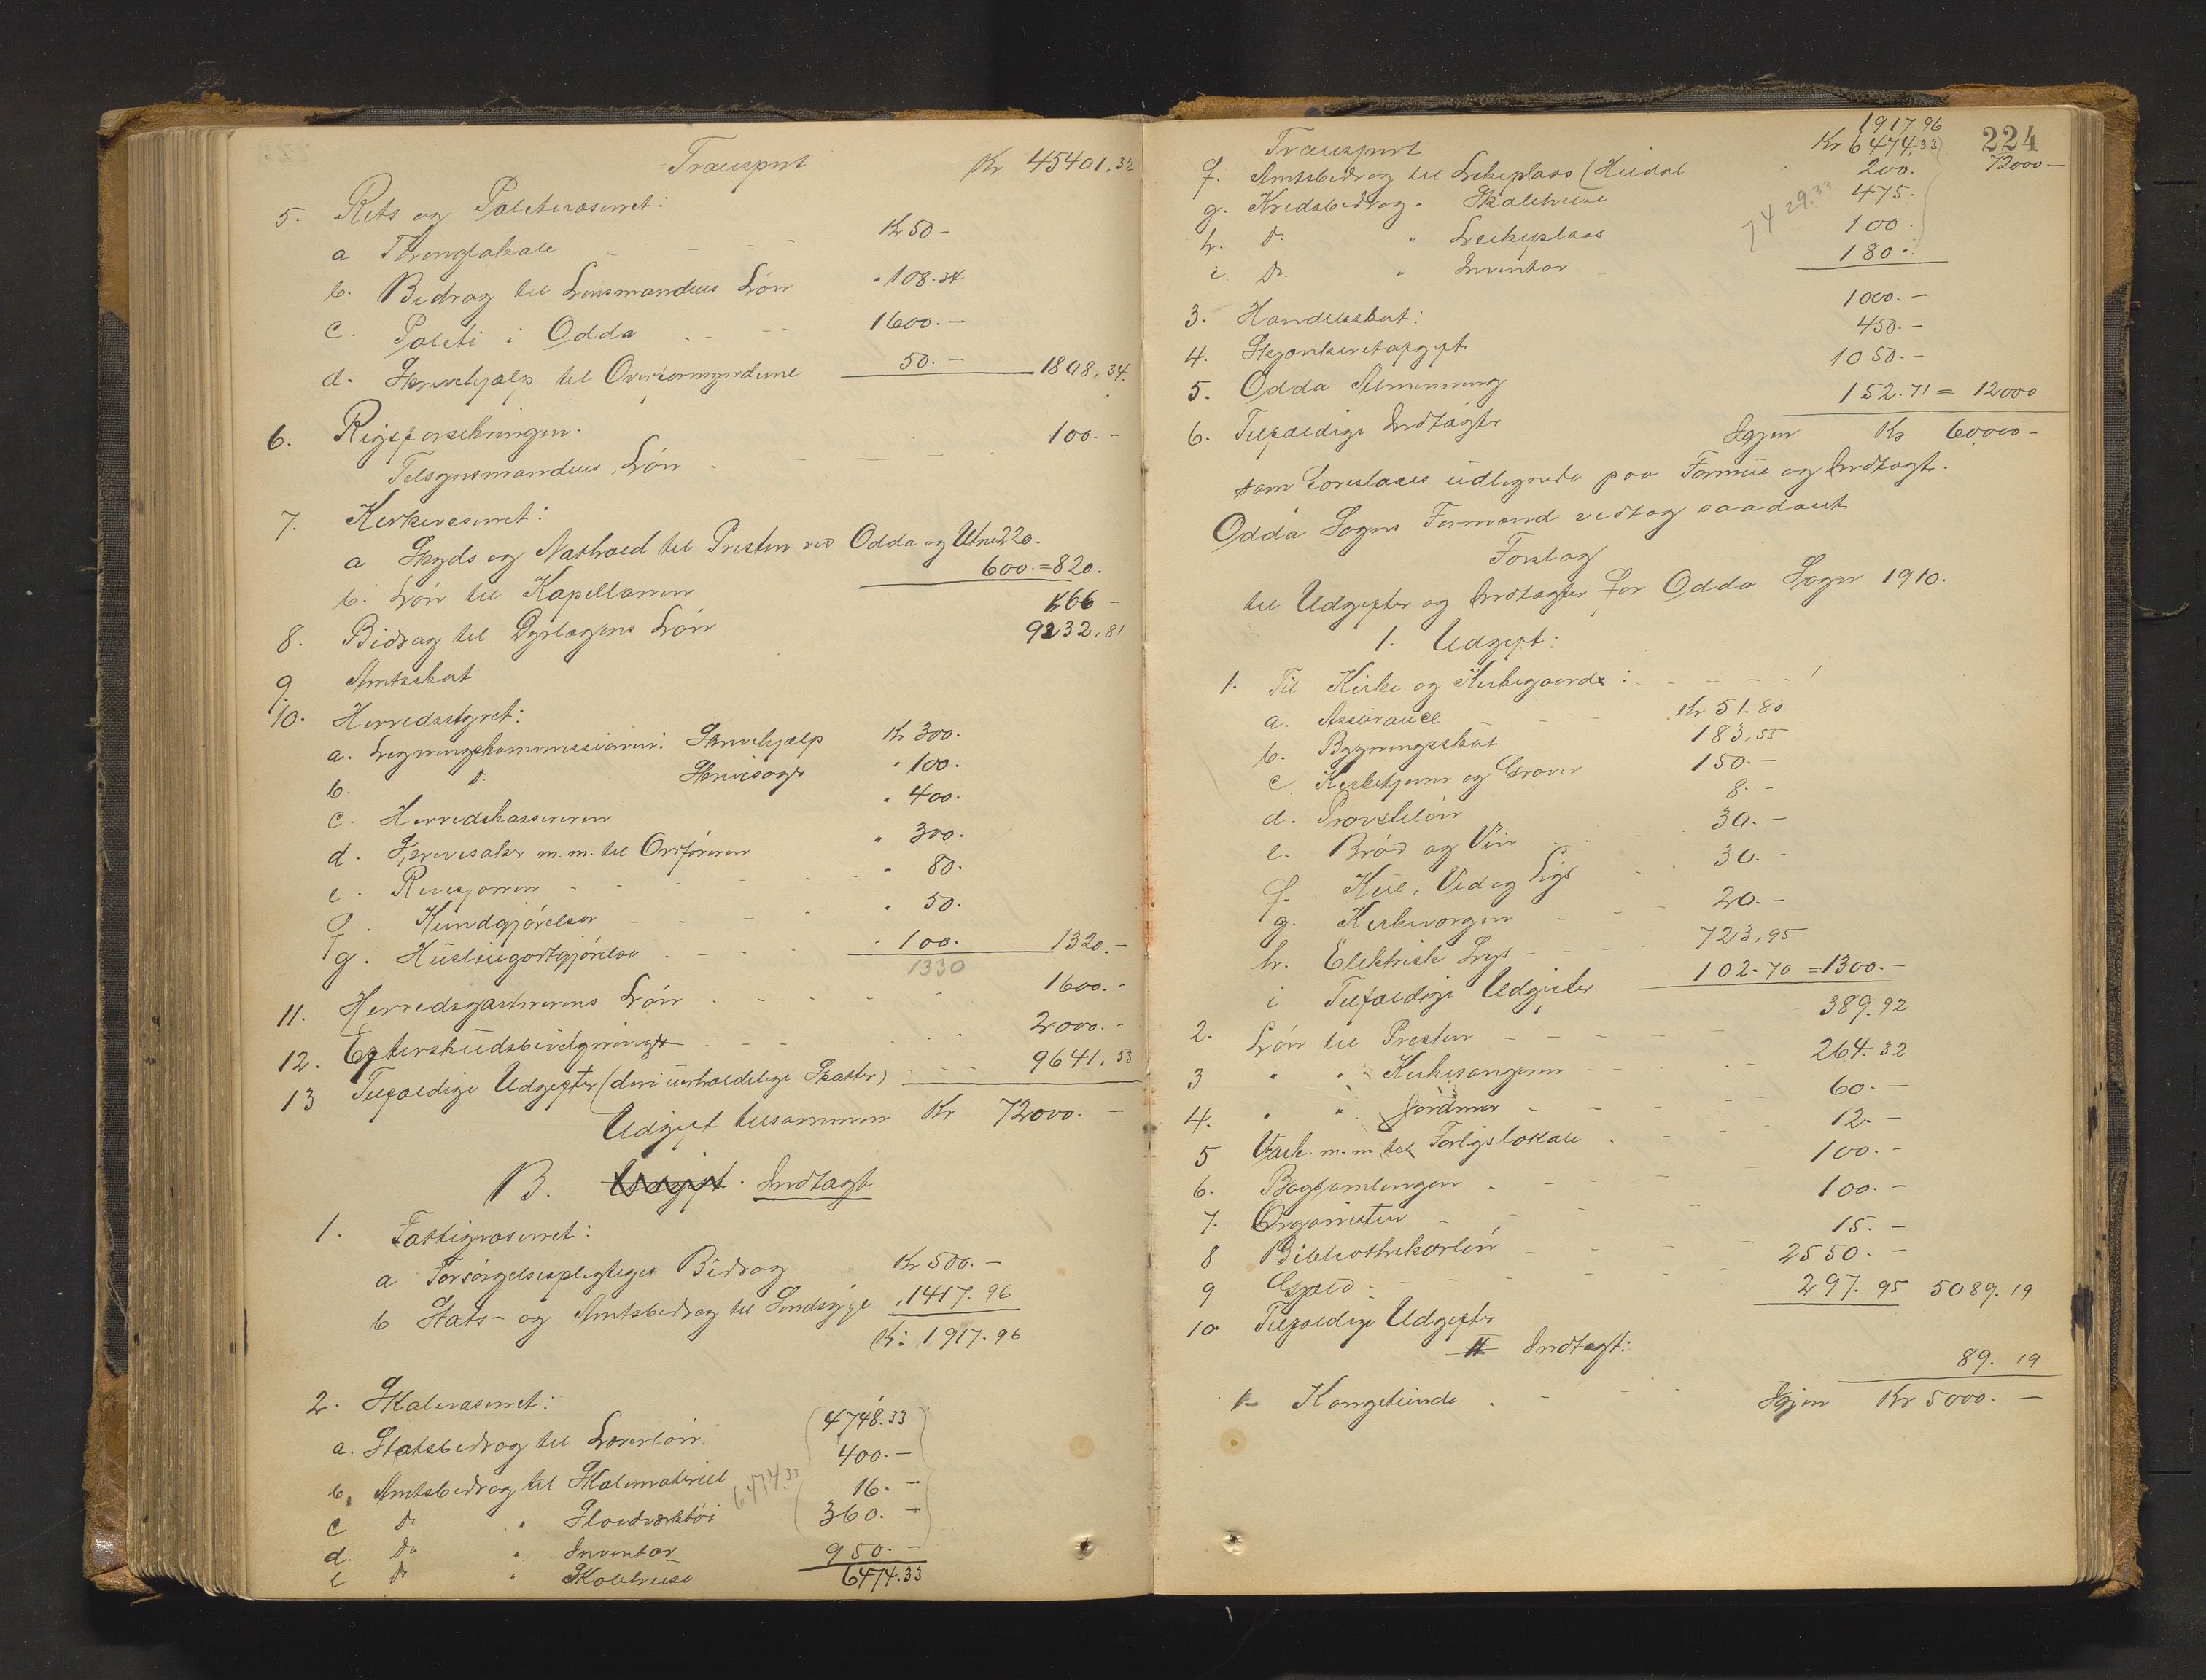 Transport Kr 45401.32
5. Rets og Politivæsenet:
a Thinglokale - - - Kr 50 -
b. Bidrag til Lensmandens Løn " 108.34
c. Politi i Odda - - 1600. -
d. Skrivehjælp til Overformynderne 50. - 1808.34.
6. Rigsforsikringen.
Tilsynsmandens Løn - - - - 100. -
7. Kirkevæsenet:
a Skyds og Nathold til Presten ved Odda og Utne 220.
b. Løn til Kapellanen 600. = 820.
8. Bidrag til Dyrlægens Løn 166 -
9. Amtsskat 9232.81
10. Herredsstyret:
a. Ligningskommissionen: Skrivehjælp Kr 300.
b. Do Skrivesager " 100.
c. Herredskassereren " 400.
d. Skrivesaker m.m. til Ordføreren " 300.
e. Revisjonen - - - - " 80.
f. Kundgjørelser - - - " 50.
g. Husleiegodtgjørelse - - - " 100. 1320. -
1330
11. Herredsgartnerens Løn - - - - 1600. -
12. Efterskudsbevilgninger - - - - 2000. -
13 Tilfældige Udgifter (deri uerholdelige Skatter) - - - 9641.53
Udgift tilsammen Kr 72000. -
B. Udgift. Indtægt
1. Fattigvæsenet:
a Forsørgelsespligtiges Bidrag Kr 500. -
b Stats- og Amtsbidrag til Sindsyge " 1417.96
Kr: 1917.96
2. Skolevæsenet:
a. Statsbidrag til Lærerløn. 4748.33
b. Amtsbidrag til Skolemateriel 400. -
c Do " Sløidverktøi 16. -
6474.33
d. Do " Inventar 360. -
e Do " Skolehuse 950. -
6474.33
224
1917.96
Transport Kr 6474.33 72000 -
f. Amtsbidrag til Lekeplass (Hildal 200.
g. Kredsbidrag " Skolehuse 475.
7429.33
h. Do " Lekeplass 100.
i Do " Inventar 180.
3. Handelsskat: 1000. -
4. Skjænkeretafgift 450. -
5. Odda Almenning 1050. -
6. Tilfældige Indtægter 152.71 = 12000
Igjen Kr 60,000 -
som foreslaaes udlignede paa Formue og Indtægt.
Odda Sogns Formænd vedtog saadant
Forslag
til Udgifter og Indtægter for Odda Sogn 1910.
1. Udgift:
1. Til Kirke og Kirkegaard: - - - - -
a. Assurance - - - Kr 51.80
b. Bygningsskat 183.55
c. Kirketjener og Graver 150. -
d. Provsteløn 8. -
e. Brød og Vin - - 30. -
f. Kul, Ved og Lys - - 30. -
g. Kirkevergen - - - 20. -
h. Elektrisk Lys - - - 723.95
i Tilfældige Udgifter 102.70 = 1300. -
2. Løn til Presten - - - - 389.92
3 " " Kirkesangeren - - - - 264.32
4. " " Jordmor - - - - 60. -
5 Vask m.m. til Forligslokale - - - 12. -
6. Bogsamlingen - - - - 100. -
7. Organisten - - - - 100. -
8 Bibliothekarløn - - - - 15. -
9 Gjæld - - - - - 2550. -
10 Tilfældige Udgifter 297.95 5089.19
II Indtægt:
1. Kongetiende - - - 89.19
Igjen Kr 5000. -